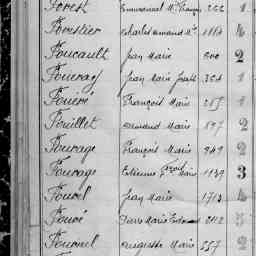 Forest Emmanuel Me François 222 1
Forestier Charles Amand Me 1864 4
Foucault Jean Marie 800 2
Fouray Jean Marie Joseph 364 1
Fouéré François Marie 285 1
Fouillet Armand Marie 897 2
Fourage François Marie 949 2
Fourage Etienne Marie 1139 3
Fourel Jean Marie 1713 4
Fouré Pierre Marie 2112 5
Fournel Auguste Marie 557 2